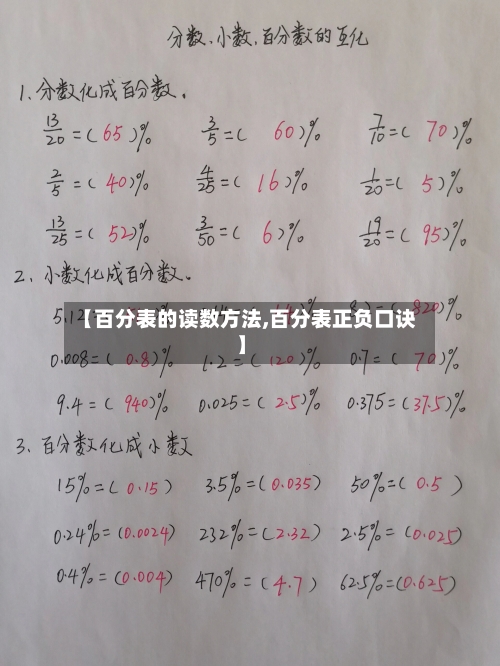 分数、小数、百分数的互化
1、分数化成百分数。
13/20=(65)% 3/5=(60)% 7/10=(70)%
2/5=(40)% 4/25=(16)% 1/20=(5)%
13/25=(52)% 3/50=(6)% 19/20=(95)%
2、小数化成百分数。
5.12 820)%
【百分表的读数方法,百分表正负口诀
】
0.008=(0.8)% 1.2=(120)% 0.7=(70)%
9.4=(940)% 0.025=(2.5)% 0.375=(37.5)%
3、百分数化成小数
15%=(0.15) 3.5%=(0.035) 50%=(0.5)
0.24%=(0.0024) 232%=(2.32) 2.5%=(0.025)
0.4%=(0.004) 470%=(4.7) 62.5%=(0.625)